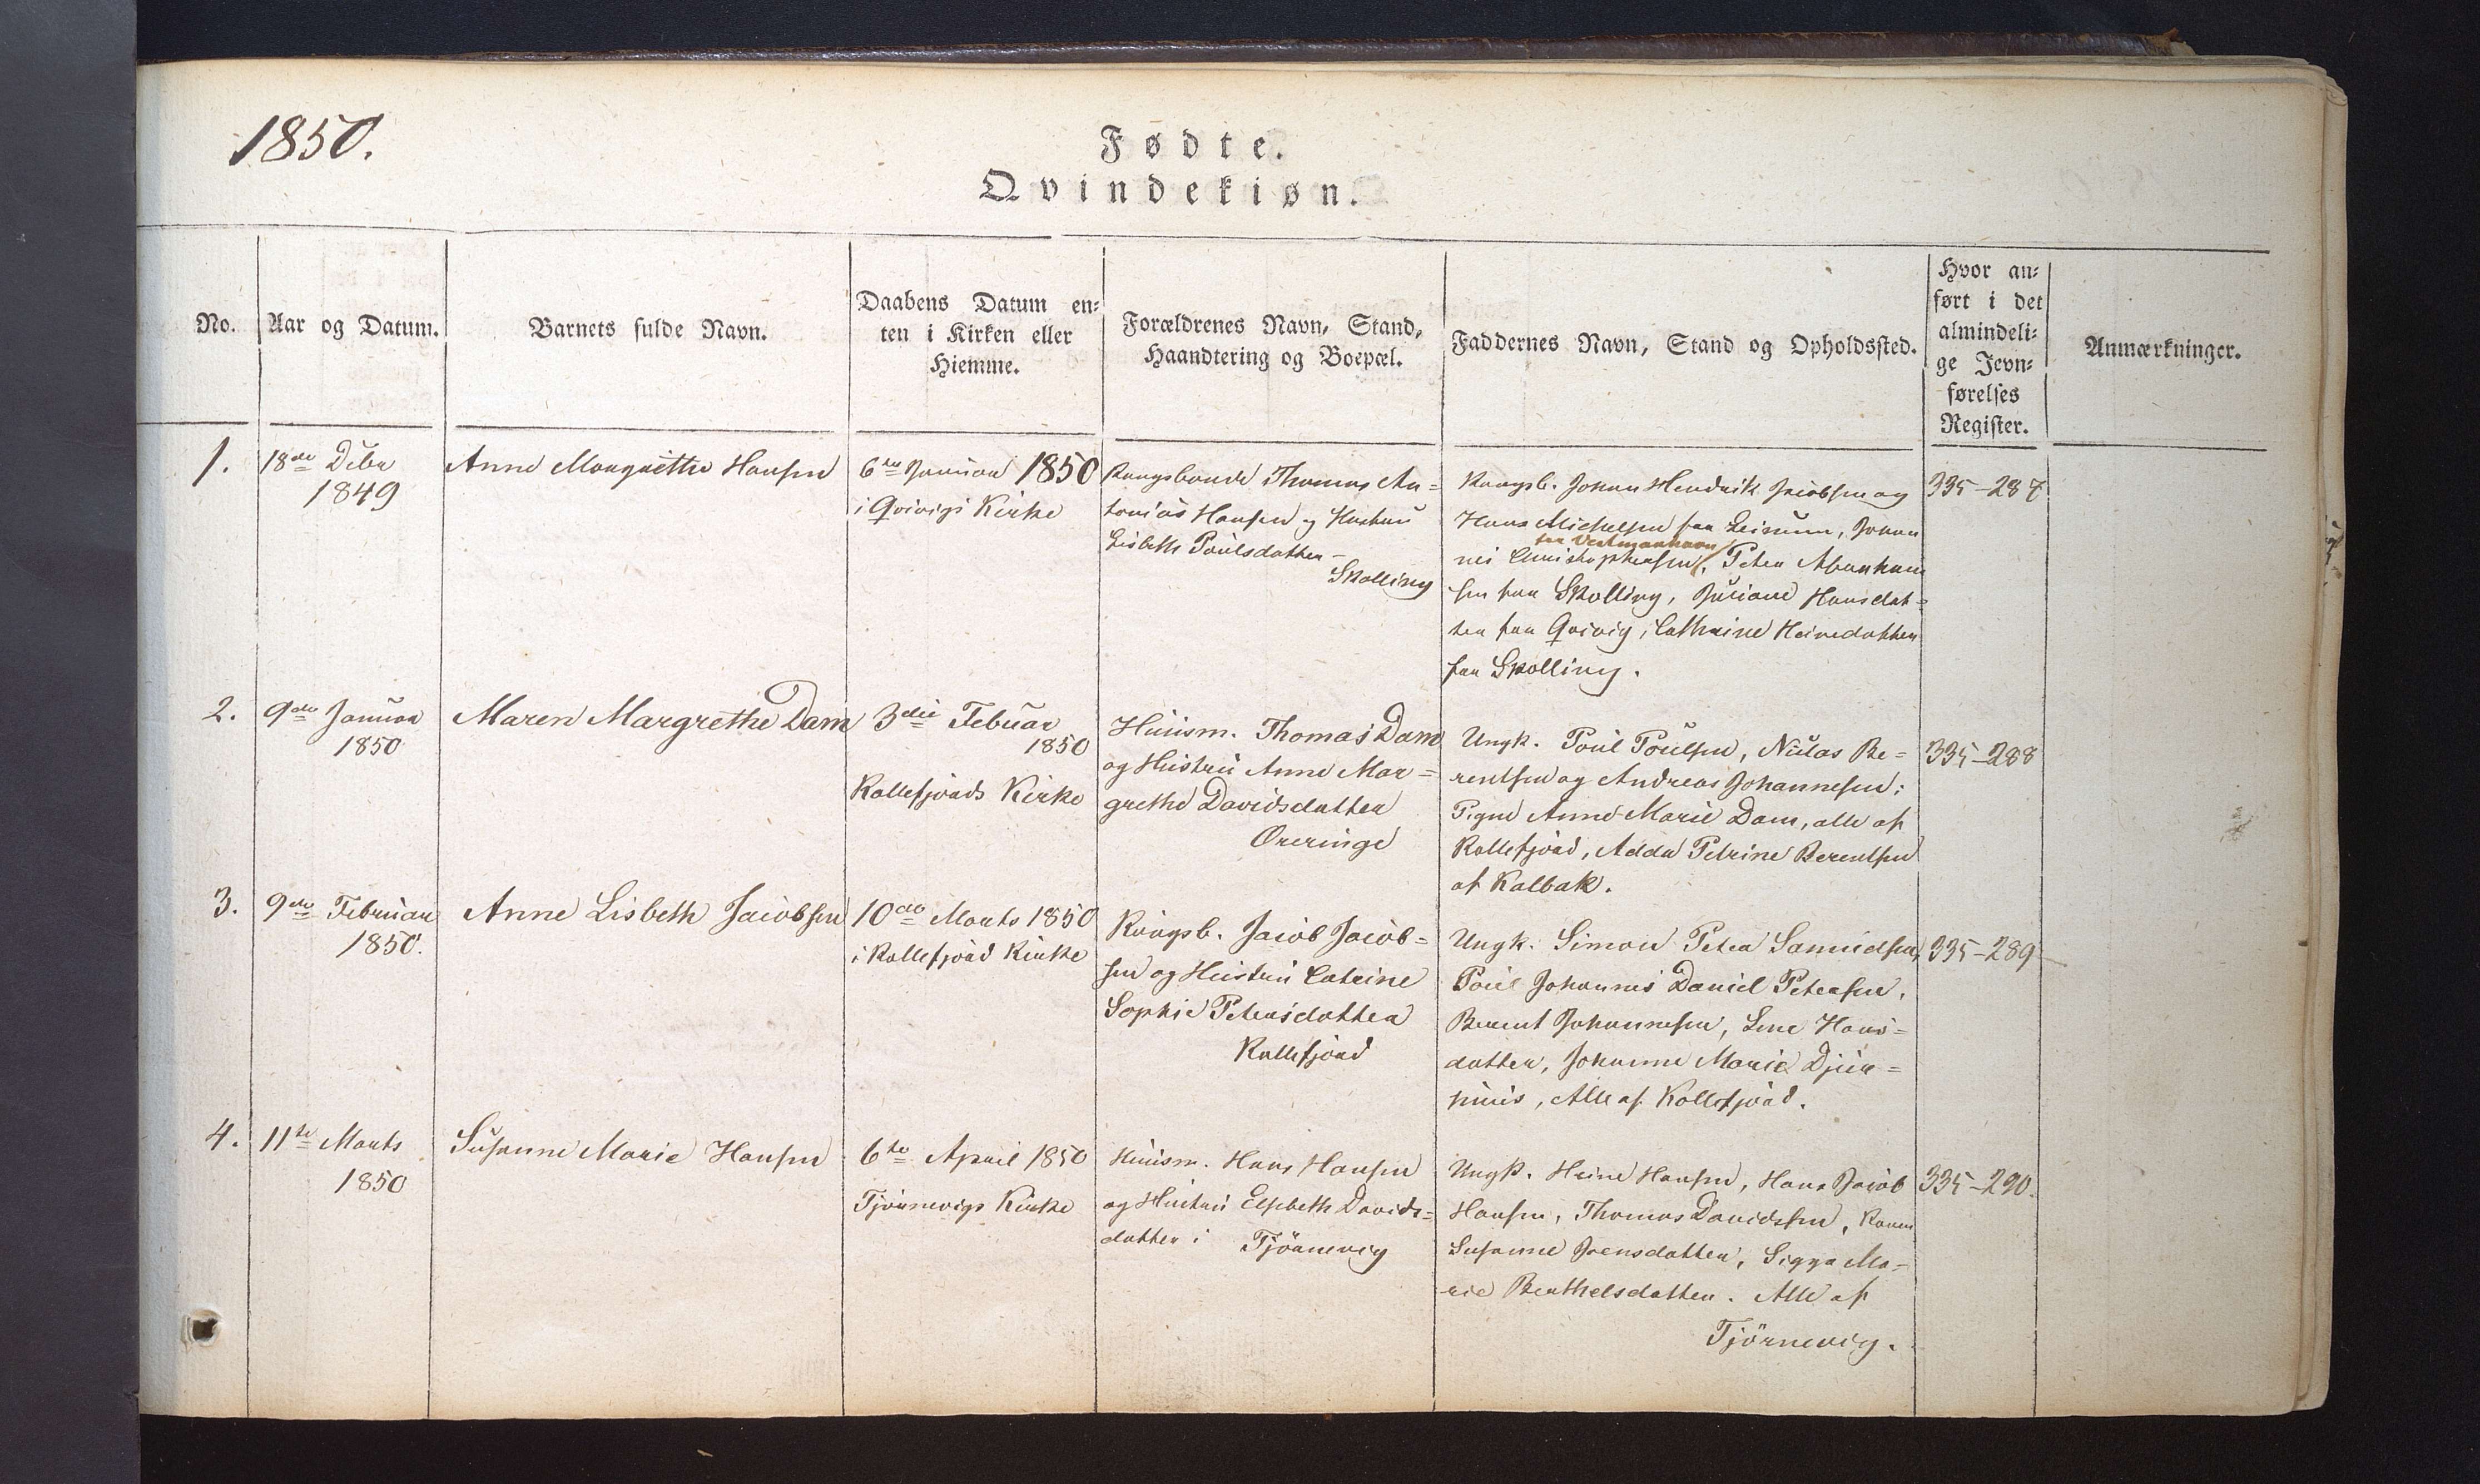 1850.
Fødte.
Qvindekiøn.
No.
Aar og Datum.
Barnets fulde Navn.
Daabens Datum en-
ten i Kirken eller
Hiemme.
Forældrenes Navn, Stand,
Haandtering og Boepæl.
Faddernes Navn, Stand og Opholdssted.
Hvor an-
ført i det
almindeli-
ge Jevn-
førelses
Register.
Anmærkninger.
1.
18de Dcbr
1849
Anne Margrethe Hansen
6te Januar 1850
i Qvivigs Kirke
Kongsbonde Thomas An-
tonius Hansen og Hustru
Lisbeth Poulsdatter -
Skælling
Kongsb. Johan Hendrik Jacobsen og
Hans Michelsen fra Leinum, Johan
fra Vestmanhavn
nes Christophersen, Peter Abraham
sen fra Skælling, Juliane Hansdat-
ter fra Qvivig, Cathrine Heinedatter
fra Skælling.
335-287
2.
9de Januar
1850
Maren Margrethe Dam
3die Febuar
1850
Kollefjords Kirke
Huusm. Thomas Dam
og Hustru Anne Mar-
grethe Davidsdatter
Oreringe
Ungk. Poul Poulsen, Niclas Be-
rentsen og Andreas Johannesen;
Pigen Anne Marie Dam, alle af
Kollefjord, Adda Petrine Berentsen
af Kalbak.
335-288
3.
9de Februar
1850.
Anne Lisbeth Jacobsen
10de Marts 1850
i Kollefjord Kirke
Kongsb. Jacob Jacob-
sen og Hustru Catrine
Sophie Petersdatter
Kollefjord
Ungk. Simon Peter Samuelsen,
Poul Johannes Daniel Petersen,
Berent Johannesen, Lene Hans-
datter, Johanne Marie Djur-
huus, Alle af Kollefjord.
335-289
4.
11te Marts
1850
Susanne Marie Hansen
6te April 1850
Tjörnevigs Kirke
Huusm. Hans Hansen
og Hustru Elsebeth Davids-
datter i Tjörnevig
Ungk. Heine Hansen, Hans Jacob
Hansen, Thomas Davidsen, Karen
Susanne Joensdatter, Sigga Ma-
rie Berthelsdatter. Alle af
Tjörnevig.
335-290.